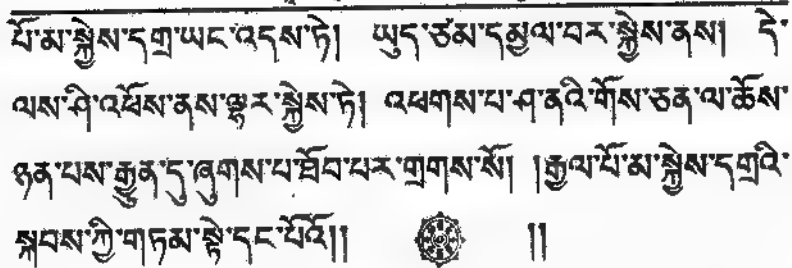 པོ་མ་སྐྱེས་དགྲ་ཡང་འདས་ཏེ། ཡུད་ཙམ་དམྱལ་བར་སྐྱེས་ནས། དེ་
ལས་ཤི་འཕོས་ནས་ལྷར་སྐྱེས་ཏེ། འཕགས་པ་ཤ་ནའི་གོས་ཅན་ལ་ཆོས་
ཉན་པས་རྒྱུན་དུ་ཞུགས་པ་ཐོབ་པར་གྲགས་སོ། །རྒྱལ་པོ་མ་སྐྱེས་དགྲའི་
སྐབས་ཀྱི་གཏམ་སྟེ་དང་པོའོ།། །།